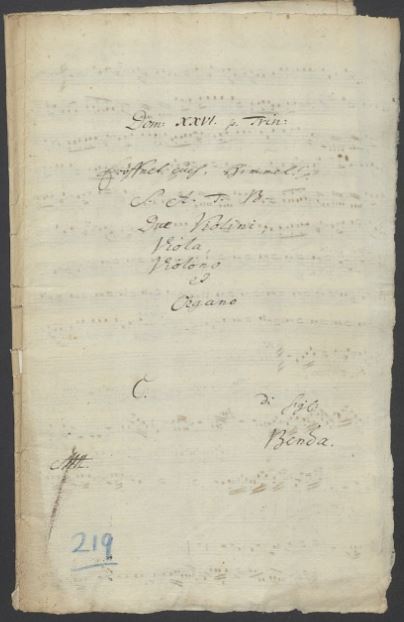 Dom: XXVI. p. Trin:
Eröffnet euch, Himmel!
S. A. T. B.
Due Violini,
Viola,
Violono
ed
Organo
C.
di Sig:
Benda.
219